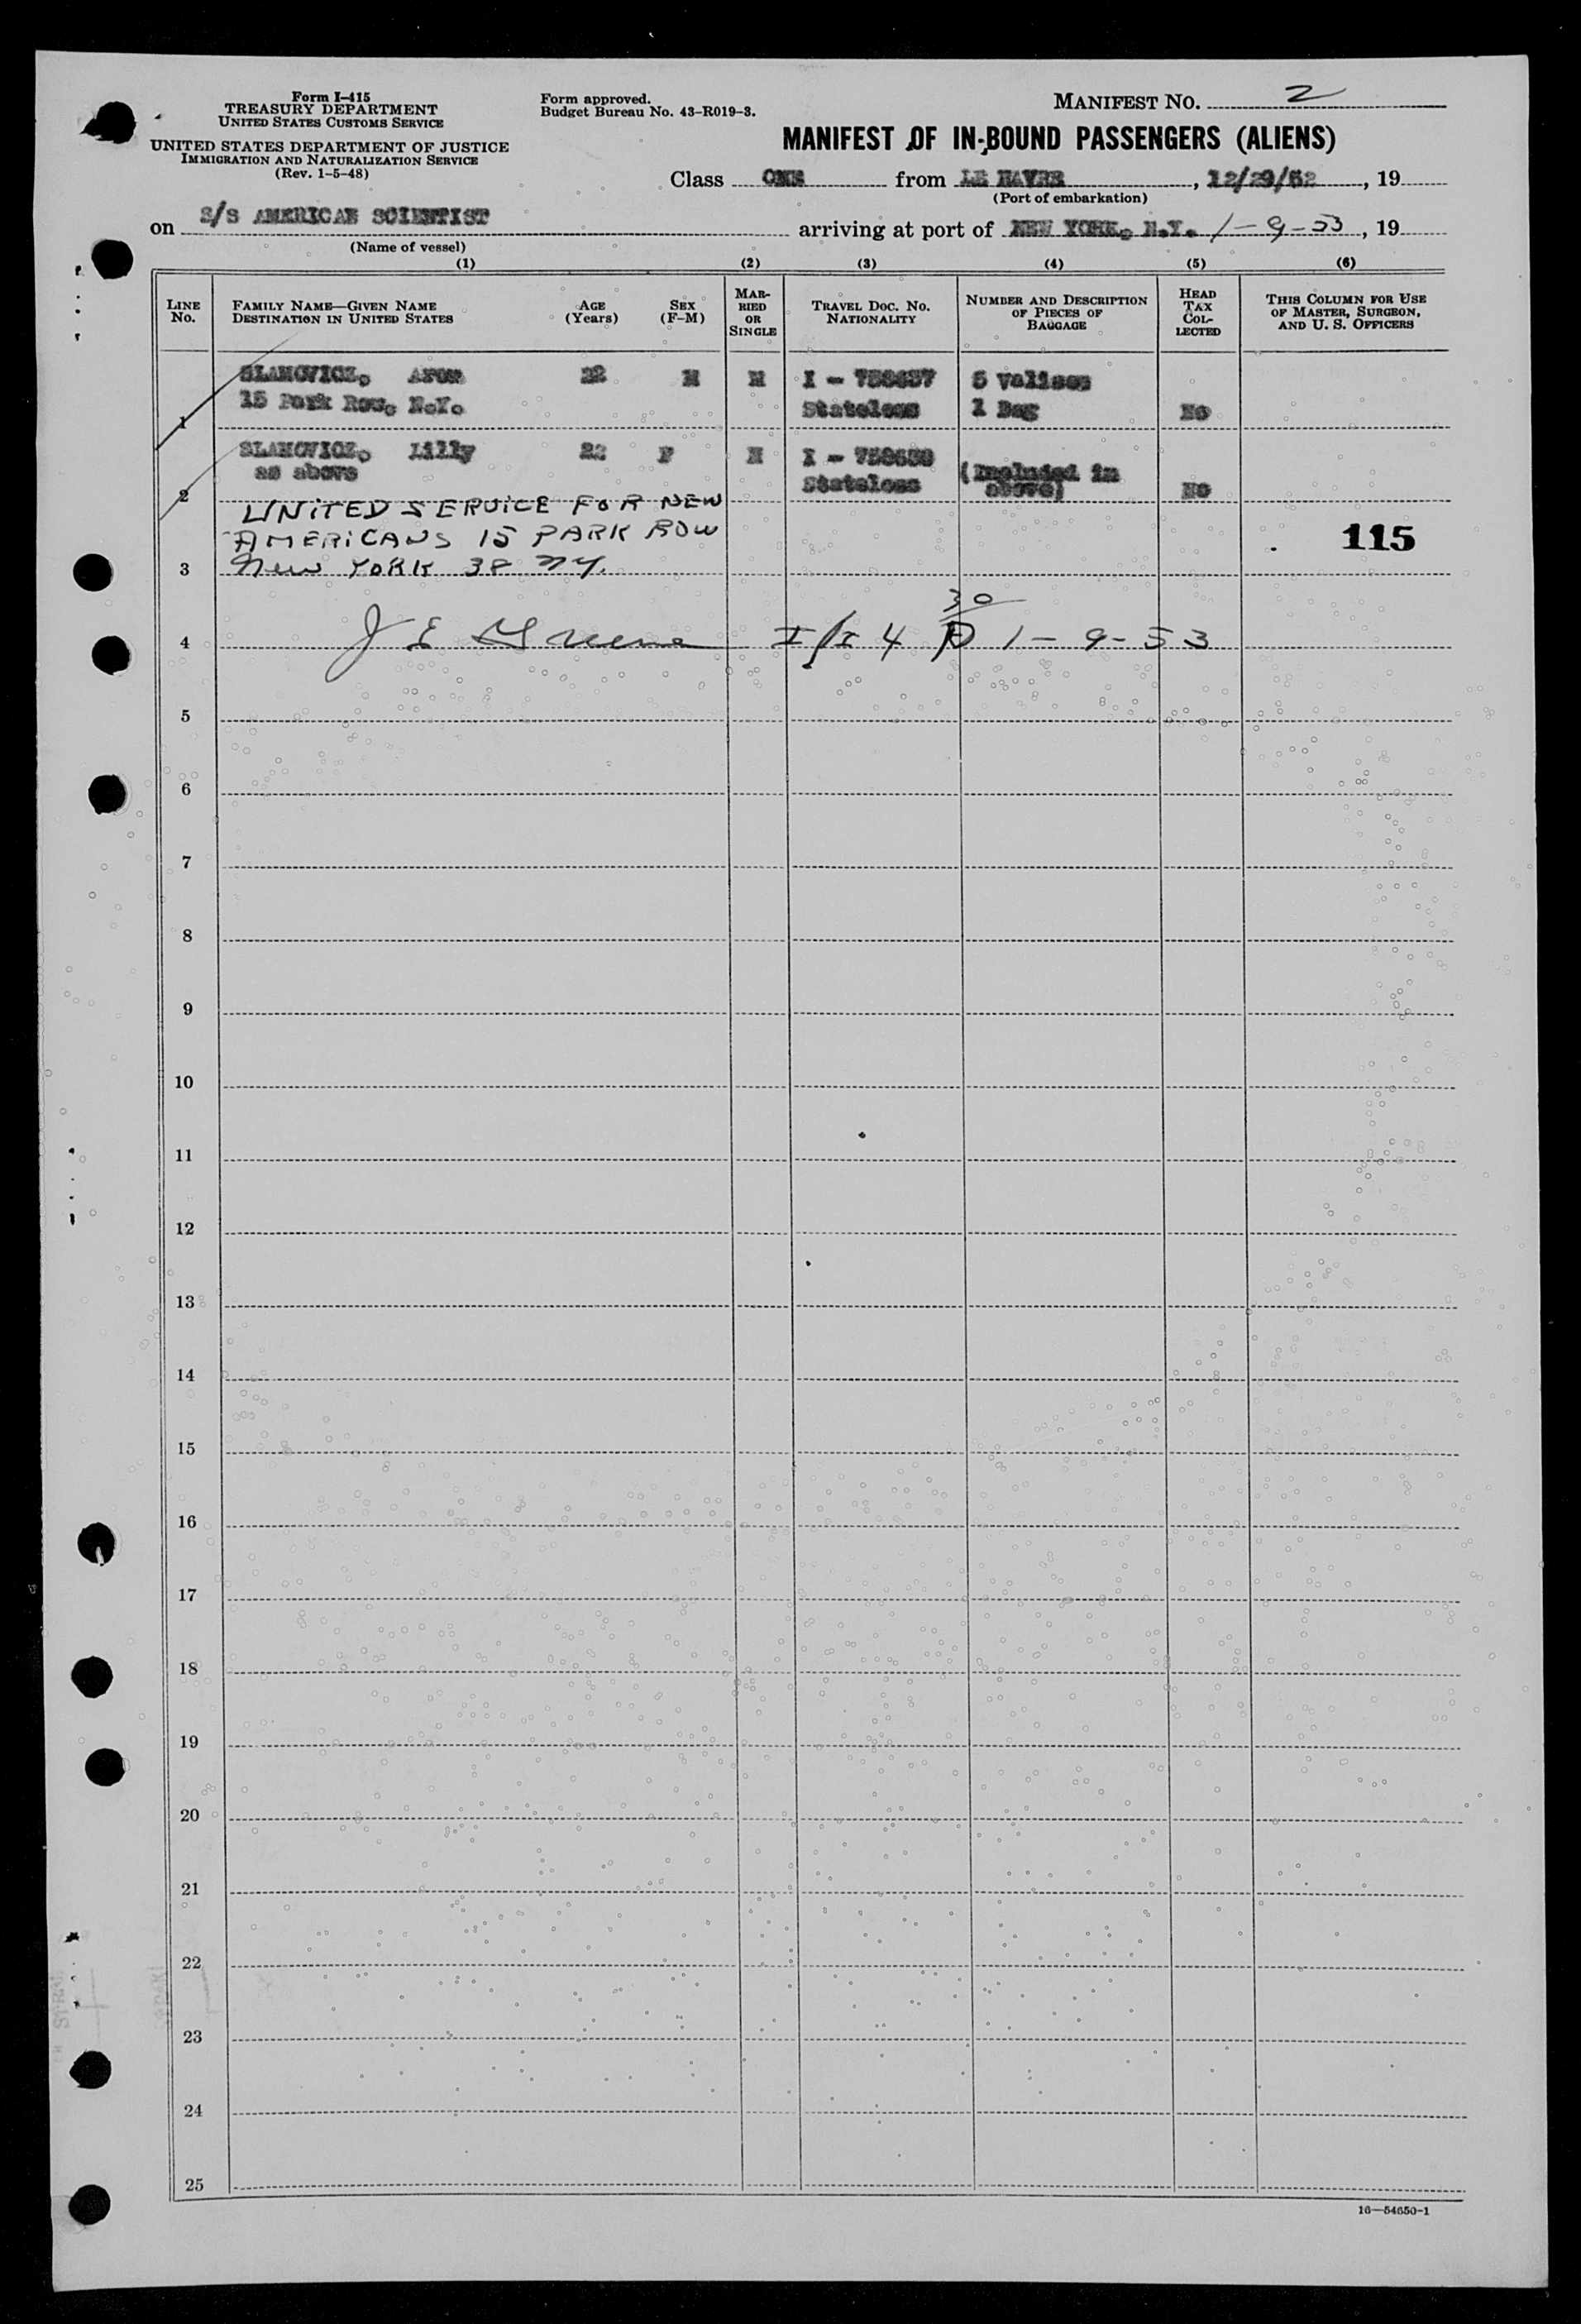 Form I-415
TREASURY DEPARTMENT
UNITED STATES CUSTOMS SERVICE
UNITED STATES DEPARTMENT OF JUSTICE
IMMIGRATION AND NATURALIZATION SERVICE
(Rev. 1-5-48)
Form approved.
Budget Bureau No. 43-R019-3.
MANIFEST NO. 2
MANIFEST OF IN-BOUND PASSENGERS (ALIENS)
Class ONE from LE HAVRE, 12/29/52, 19
(Port of embarkation)
on S/S AMERICAN SCIENTIST arriving at port of NEW YORK, N.Y. 1-9-53, 19
(Name of vessel)
(1) (2) (3) (4) (5) (6)
LINE No.
FAMILY NAME—GIVEN NAME
DESTINATION IN UNITED STATES
AGE (Years)
SEX (F-M)
MARRIED OR SINGLE
TRAVEL DOC. NO.
NATIONALITY
NUMBER AND DESCRIPTION OF PIECES OF BAGGAGE
HEAD TAX COLLECTED
THIS COLUMN FOR USE OF MASTER, SURGEON, AND U. S. OFFICERS
SLAMOVICZ, Aron 22 M M I - 5 valises
1 15 Park Row, N.Y. Stateless 1 Bag No
SLAMOVICZ, Lilly 22 F M I -
2 as above Stateless (Included in above) No
UNITED SERVICE FOR NEW
AMERICANS 15 PARK ROW
3 New YORK 38 NY.
115
30
4 J E Greene 1-9-53
5
6
7
8
9
10
11
12
13
14
15
16
17
18
19
20
21
22
23
24
25
16—54650-1